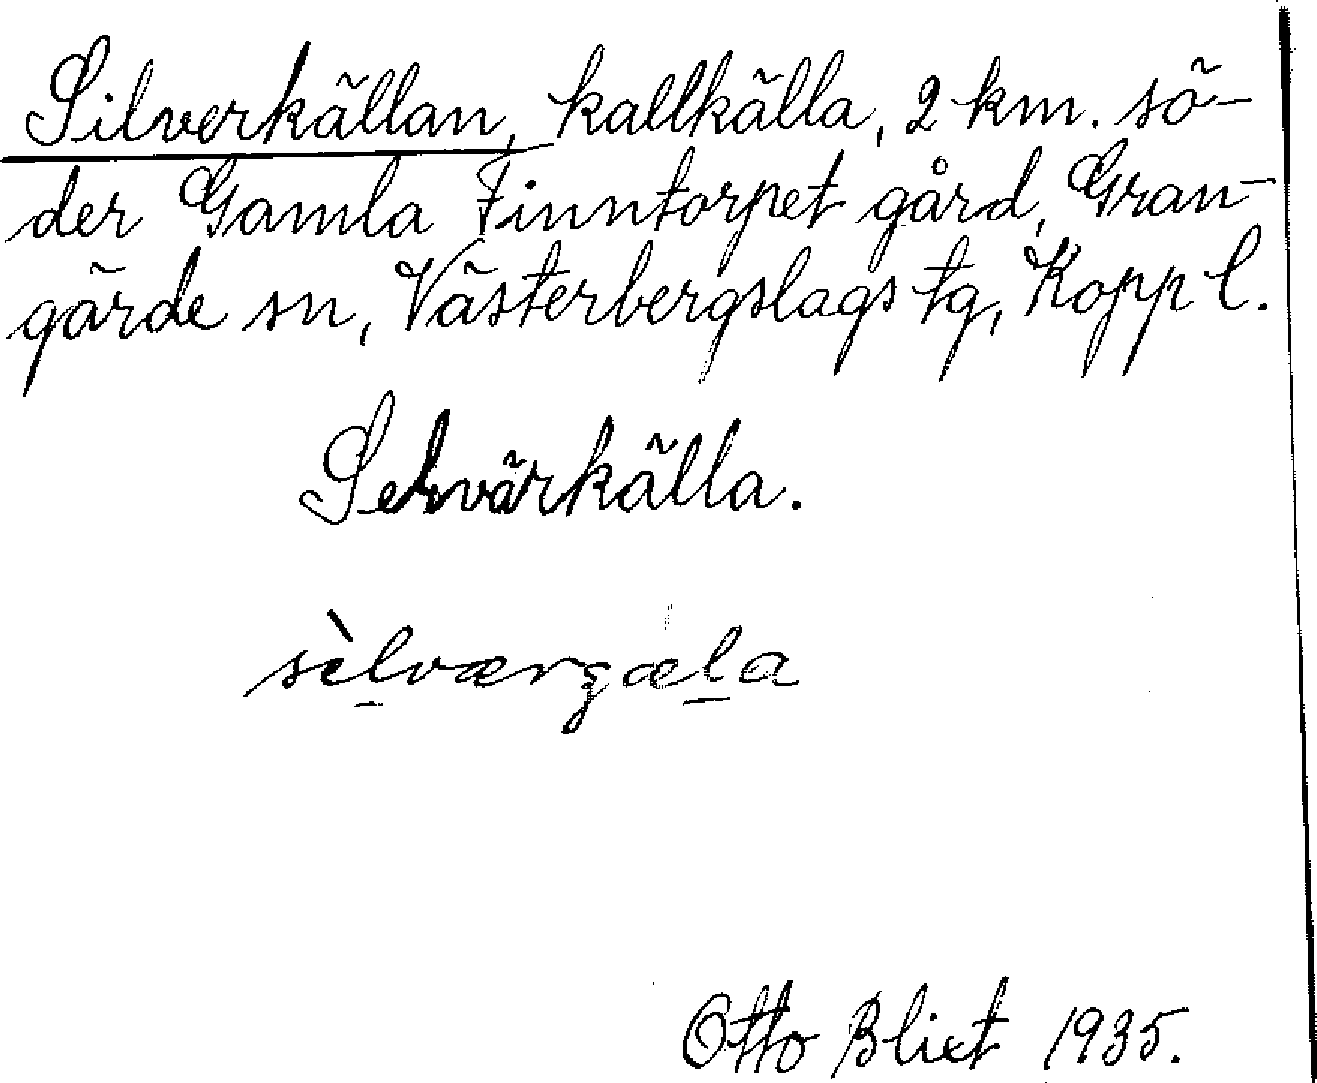 Silverkällan, kallkälla, 2 km. sö-
der Gamla Finntorpet gård, Gran-
gärde sn, Västerbergslags tg, Kopp l.
Selvärkälla.
sèlværgæla
Otto Blixt 1935.